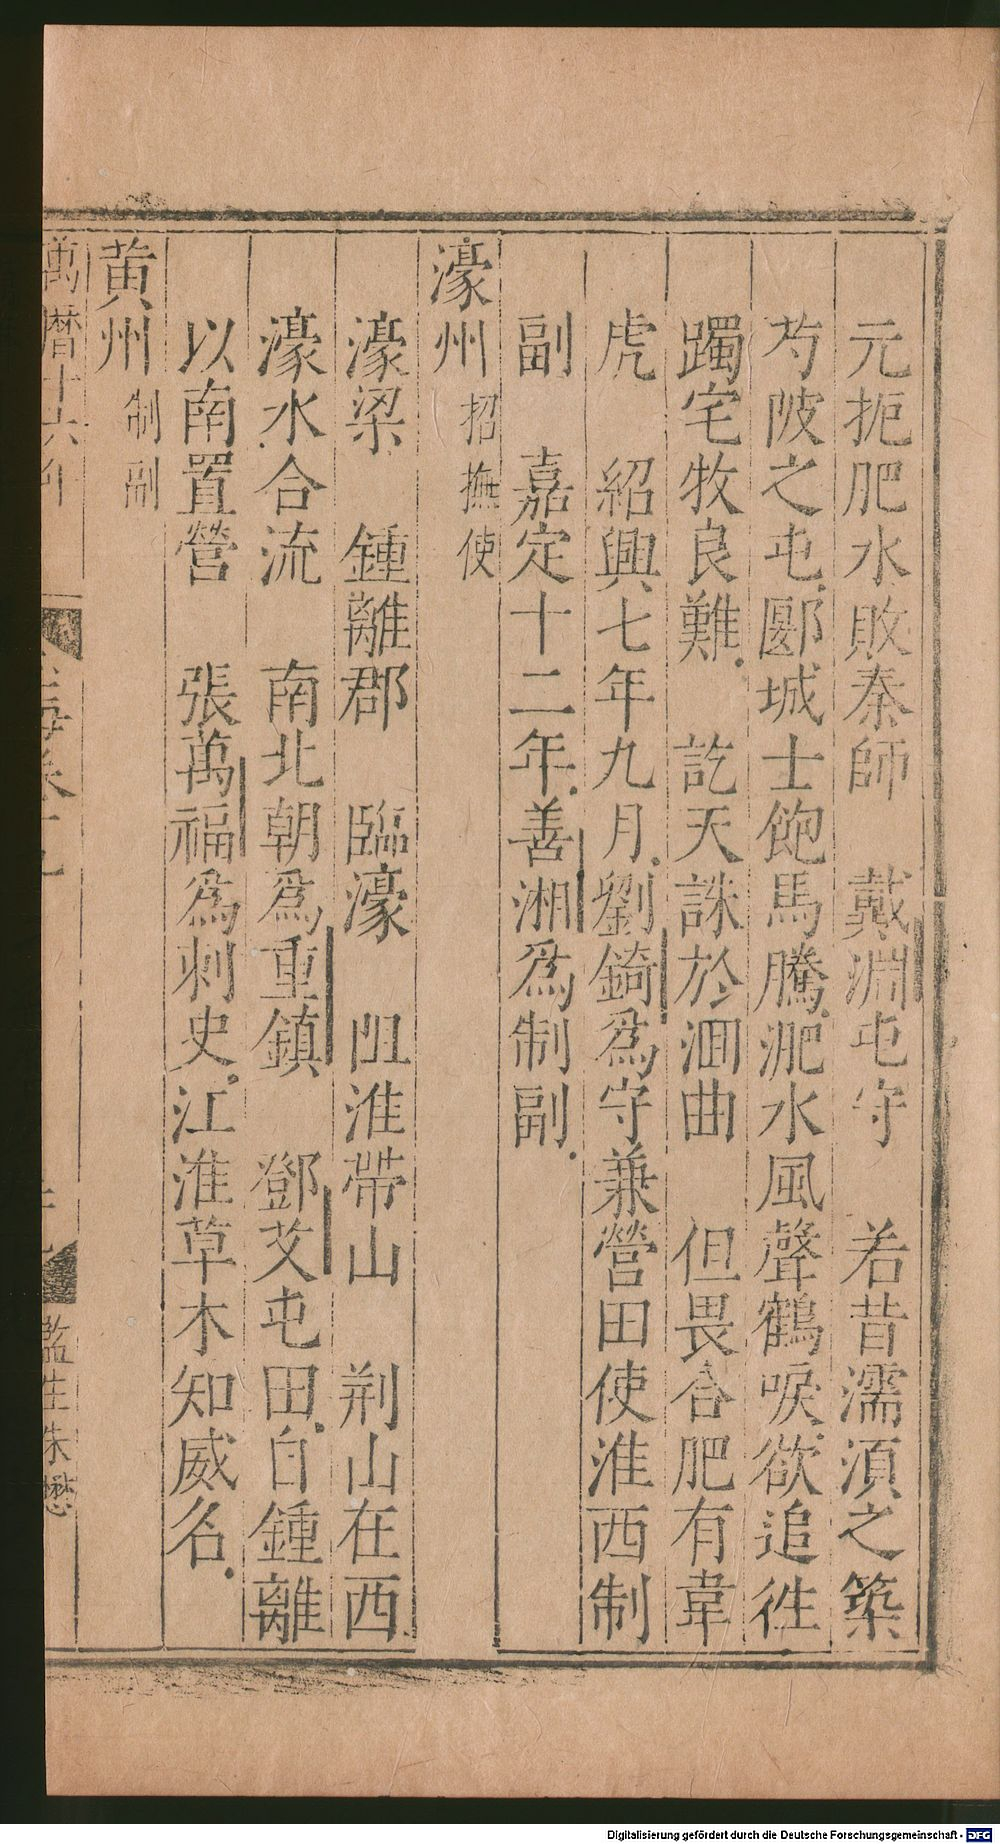 元扼肥水敗秦師　戴淵屯守　若昔濡湏之築
芍陂之屯郾城士飽馬騰淝水風聲鶴唳欲追徃
躅宅牧良難　訖天誅於洄曲　但畏合肥有韋
虎　紹興七年九月劉錡爲守兼營田使淮西制
副　嘉定十二年善湘爲制副
濠州招撫使
濠梁　鍾離郡　臨濠　阻淮帶山　荆山在西
濠水合流　南北朝爲重鎮　鄧艾屯田自鍾離
以南置營　張萬福爲刺史江淮草木知威名
黄州制副
萬曆十六年
監生朱懋
Digitalisierung gefördert durch die Deutsche Forschungsgemeinschaft - DFG